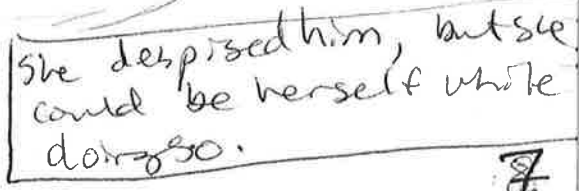 She despised him, but she
could be herself while
doing so.
7